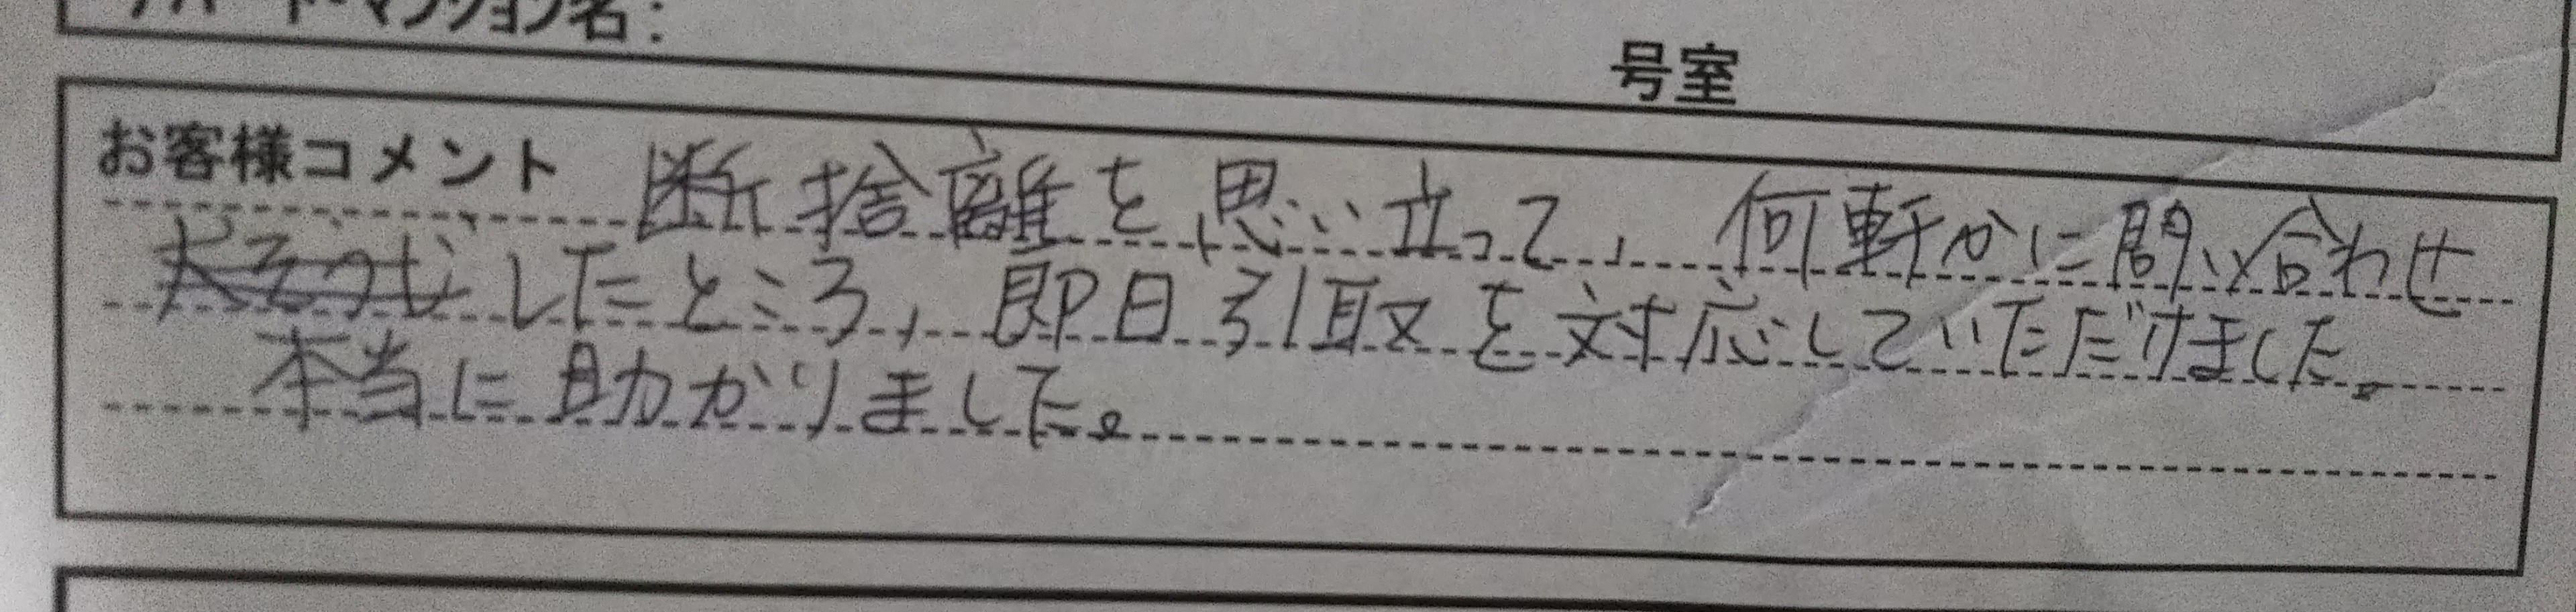 アパート・マンション名:
号室
お客様コメント 断捨離を思い立って、何軒かに問い合わせ
したところ、即日引取を対応していただけました。
本当に助かりました。